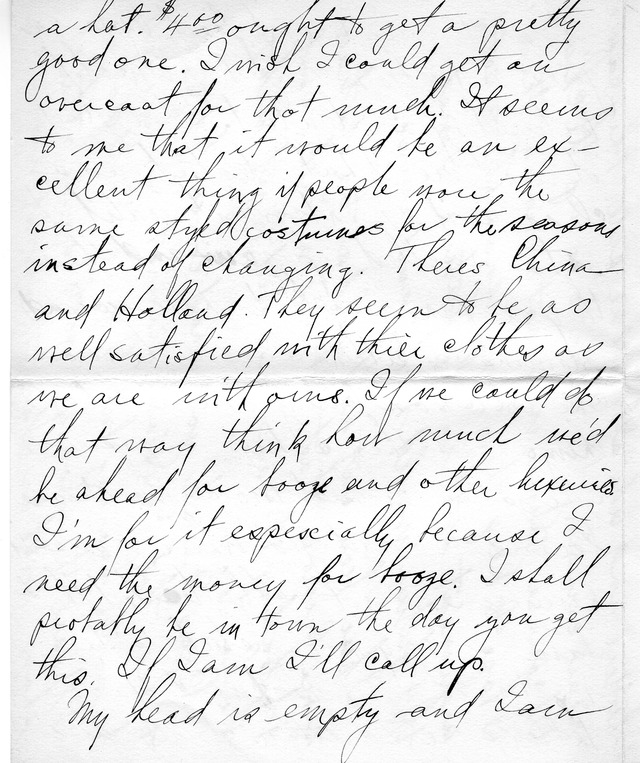 a hat. $4.00 ought to get a pretty
good one. I wish I could get an
overcoat for that much. It seems
to me that it would be an ex-
cellent thing if people wore the
same styled costumes for the seasons
instead of changing. Theres China
and Holland. They seem to be as
well satisfied with thier clothes as
we are with ours. If we could do
that way think how much we'd
be ahead for booze and other luxuries
I'm for it espescially because I
need the money for booze. I shall
probably be in town the day you get
this. If I am I'll call up.
My head is empty and I am